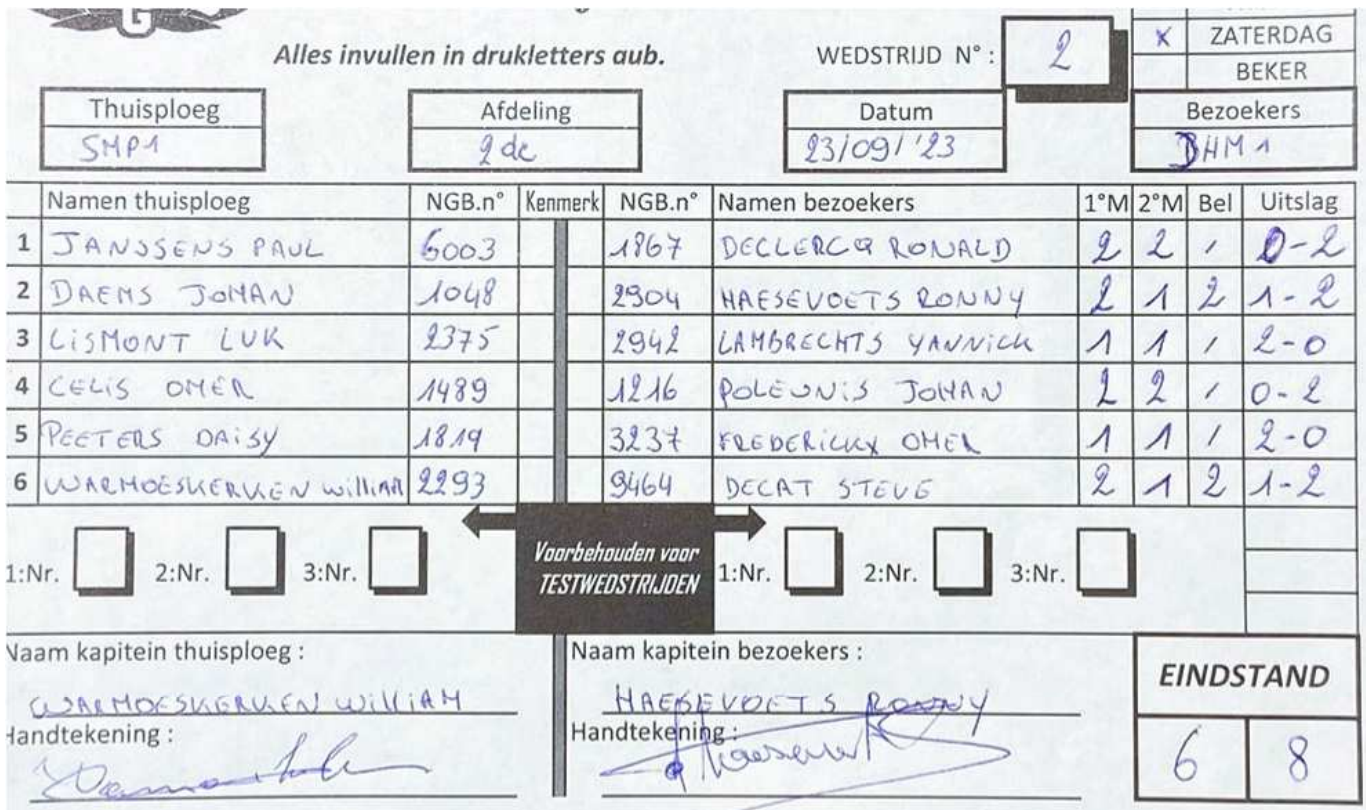 Alles invullen in drukletters aub.
WEDSTRIJD N° : 2
X ZATERDAG
BEKER
Thuisploeg Afdeling Datum Bezoekers
SMP1 2de 23/09/'23 BHM 1
Namen thuisploeg NGB.n° Kenmerk NGB.n° Namen bezoekers 1°M 2°M Bel Uitslag
1 JANSSENS PAUL 6003 1867 DECLERCQ RONALD 2 2 / 0-2
2 DAEMS JOHAN 1048 2904 HAESEVOETS RONNY 2 1 2 1-2
3 LISMONT LUK 2375 2942 LAMBRECHTS YANNICK 1 1 / 2-0
4 CELIS OMER 1489 1216 POLEUNIS JOHAN 2 2 / 0-2
5 PEETERS DAISY 1819 3237 FREDERICKX OMER 1 1 / 2-0
6 WARMOESKERKEN WILLIAM 2293 9464 DECAT STEVE 2 1 2 1-2
1:Nr. 2:Nr. 3:Nr. Voorbehouden voor TESTWEDSTRIJDEN 1:Nr. 2:Nr. 3:Nr.
Naam kapitein thuisploeg : Naam kapitein bezoekers : EINDSTAND
WARMOESKERKEN WILLIAM HAESEVOETS RONNY
Handtekening : Handtekening : 6 8